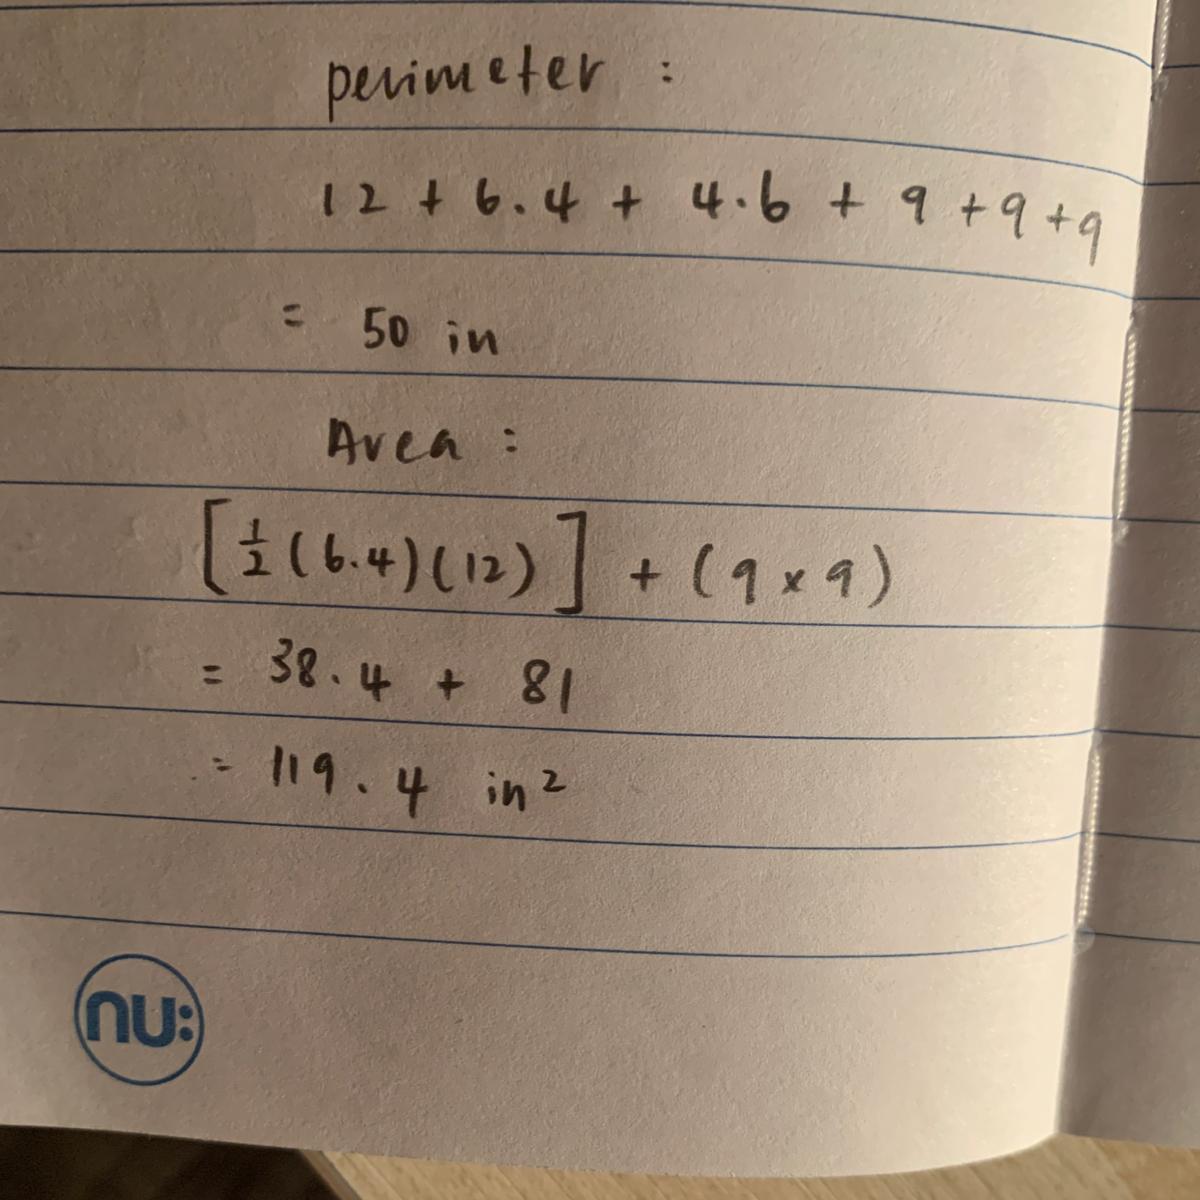 perimeter :
12 + 6.4 + 4.6 + 9 + 9 + 9
= 50 in
Area :
[½(6.4)(12)] + (9 × 9)
= 38.4 + 81
= 119.4 in²
nu: